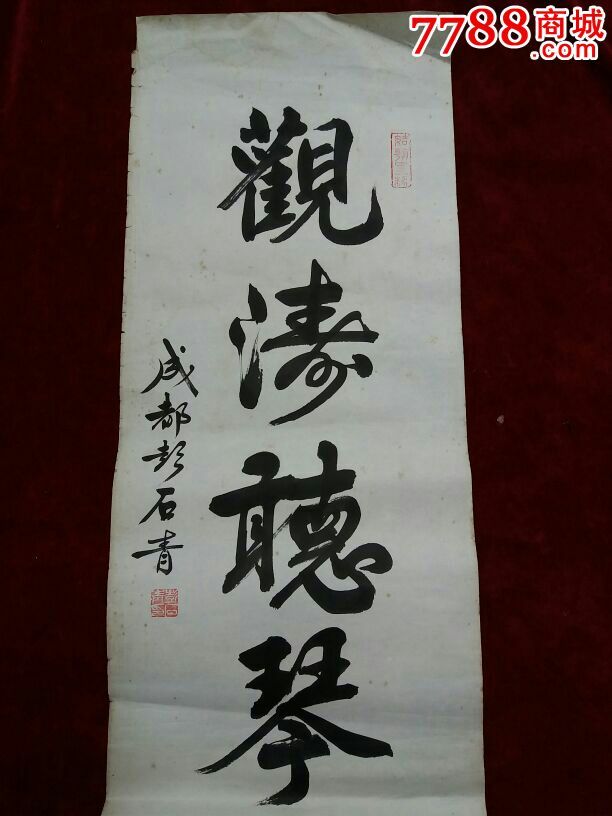 7788商城
.com
觀濤聽琴
成都彭石青